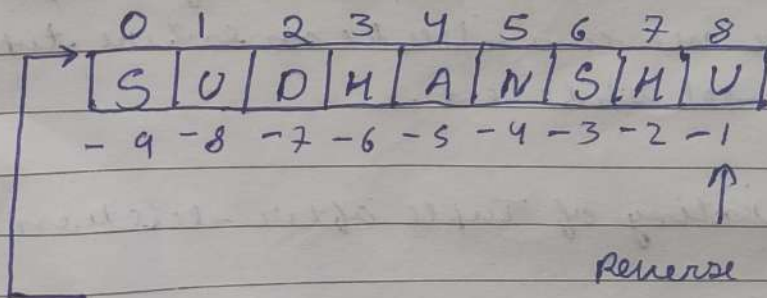 0 1 2 3 4 5 6 7 8
S U D H A N S H U
-9 -8 -7 -6 -5 -4 -3 -2 -1
Reverse